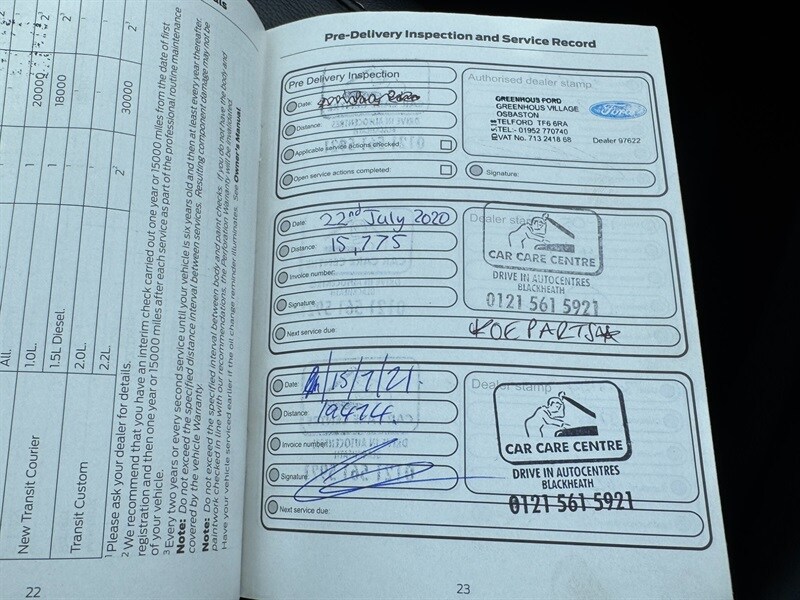 All.
1.0L.
20000
2³
1.5L Diesel.
18000
1
2³
2.0L.
1
2.2L.
2²
30000
1
2³
New Transit Courier
Transit Custom
¹ Please ask your dealer for details.
² We recommend that you have an interim check carried out one year or 15000 miles from the date of first
registration and then one year or 15000 miles after each service as part of the professional routine maintenance
of your vehicle.
³ Every two years or every second service until your vehicle is six years old and then at least every year thereafter.
Note: Do not exceed the specified distance interval between services. Resulting component damage may not be
covered by the vehicle Warranty.
Note: Do not exceed the specified interval between body and paint checks. If you do not have the body and
paintwork checked in line with our recommendations, the Perforation Warranty will be invalidated
Have your vehicle serviced earlier if the oil change reminder illuminates. See Owner's Manual.
22
Pre-Delivery Inspection and Service Record
Pre Delivery Inspection
Date:
Distance:
Applicable service actions checked:
Open service actions completed:
Authorised dealer stamp:
GREENHOUS FORD
GREENHOUS VILLAGE
OSBASTON
TELFORD TF6 6RA
TEL:- 01952 770740
VAT No. 713 2418 68
Ford
Dealer 97622
Signature:
Date: 22nd July 2020
Distance: 15,775
Invoice number:
Signature
Next service due:
Dealer stamp
CAR CARE CENTRE
DRIVE IN AUTOCENTRES
BLACKHEATH
0121 561 5921
Date: 15/7/21.
Distance: 19474.
Invoice number:
Signature
Next service due:
Dealer stamp
CAR CARE CENTRE
DRIVE IN AUTOCENTRES
BLACKHEATH
0121 561 5921
23